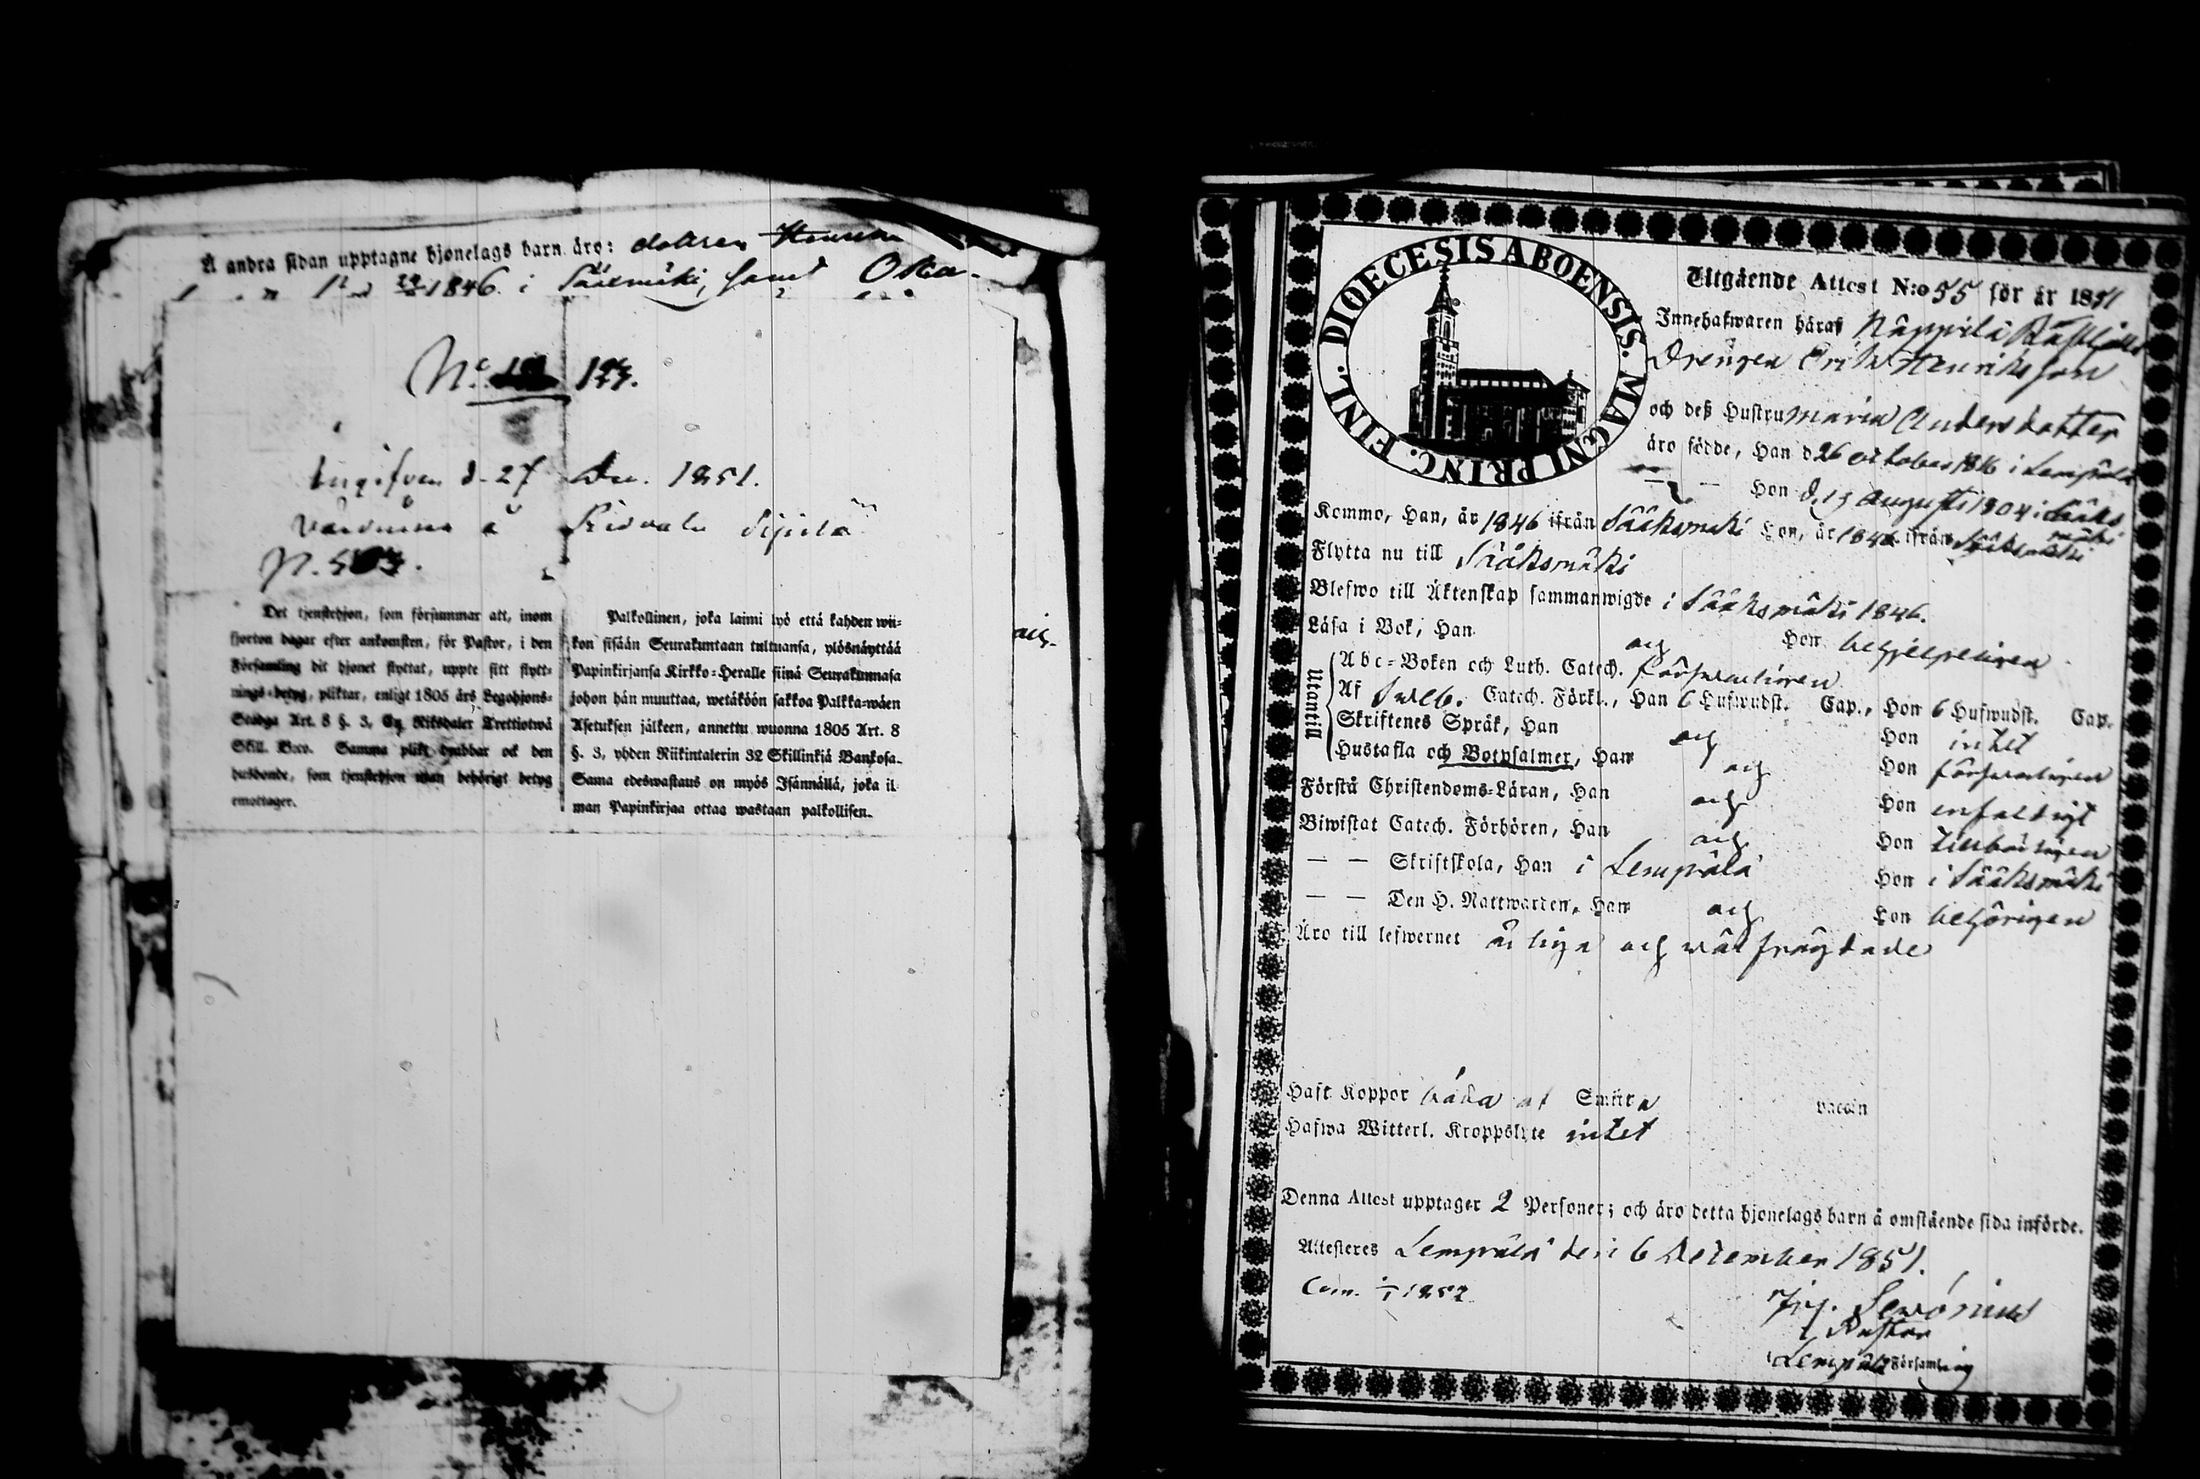 Å andra sidan upptagne hjonelags barn äro: dottren
1846 i Sääxmäki, samt
N:o
Ingifven d. 27 Dec. 1851.
å Ridvala Sipilä
Det tjenstehjon, som försummar att, inom
fjorton dagar efter ankomsten, för Pastor, i den
Församling dit hjonet flyttat, uppte sitt flytt-
nings-betyg, pliktar, enligt 1805 års Legohjons-
Stadga Art. 8 §. 3, En Riksdaler Trettiotwå
Skill. B:co. Samma plikt drabbar ock den
husbonde, som tjenstehjon utan behörigt betyg
emottager.
Palkollinen, joka laimi lyö että kahden wii-
kon sisään Seurakuntaan tultuansa, ylösnäyttää
Papinkirjansa Kirkko-Heralle siinä Seurakunnasa
johon hän muuttaa, wetäköön sakkoa Palkka-wäen
Asetuksen jälkeen, annettu wuonna 1805 Art. 8
§. 3, yhden Riikintalerin 32 Skillinkiä Bankosa.
Sama edeswastaus on myös Isännällä, joka il-
man Papinkirjaa ottaa wastaan palkollisen.
och
DIOECESIS ABOENSIS. MAGNI PRINC. FINL.
Utgående Attest N:o 55 för år 1851
Innehafwaren häraf
Drengen Erik Henriksson
och deß Hustru Maria Andersdotter
äro födde, Han d 26 october 1816 i Lempälä
— — Hon d. 19 Augusti 1804 i Sääks
mäki
Kommo, Han, år 1846 ifrån Sääksmäki Hon, år 1846 ifrån Sääksmäki
Flytta nu till Sääksmäki
Blefwo till Äktenskap sammanwigde i Sääksmäki 1846.
Läsa i Bok, Han och Hon
Utantill
Abc-Boken och Luth. Catech. försvarligen
Af Sveb. Catech. Förkl., Han 6 Hufwudst. Cap., Hon 6 Hufwudst. Cap.
Skriftenes Språk, Han och Hon intet
Hustafla och Botpsalmer, Han och Hon försvarligen
Förstå Christendoms-Läran, Han och Hon enfaldigt
Biwistat Catech. Förhören, Han och Hon
— — Skriftskola, Han i Lempälä Hon i Sääksmäki
— — Den H. Nattwarden, Han och Hon behörigen
Äro till lefwernet ärliga och wälfrägdade
Haft Koppor båda af Smitta vaccin
Hafwa Witterl. Kroppslyte intet
Denna Attest upptager 2 Personer; och äro detta hjonelags barn å omstående sida införde.
Attesteres Lempälä den 6 December 1851.
Com. 1/1 1852
Pastor
i Lempälä Församling